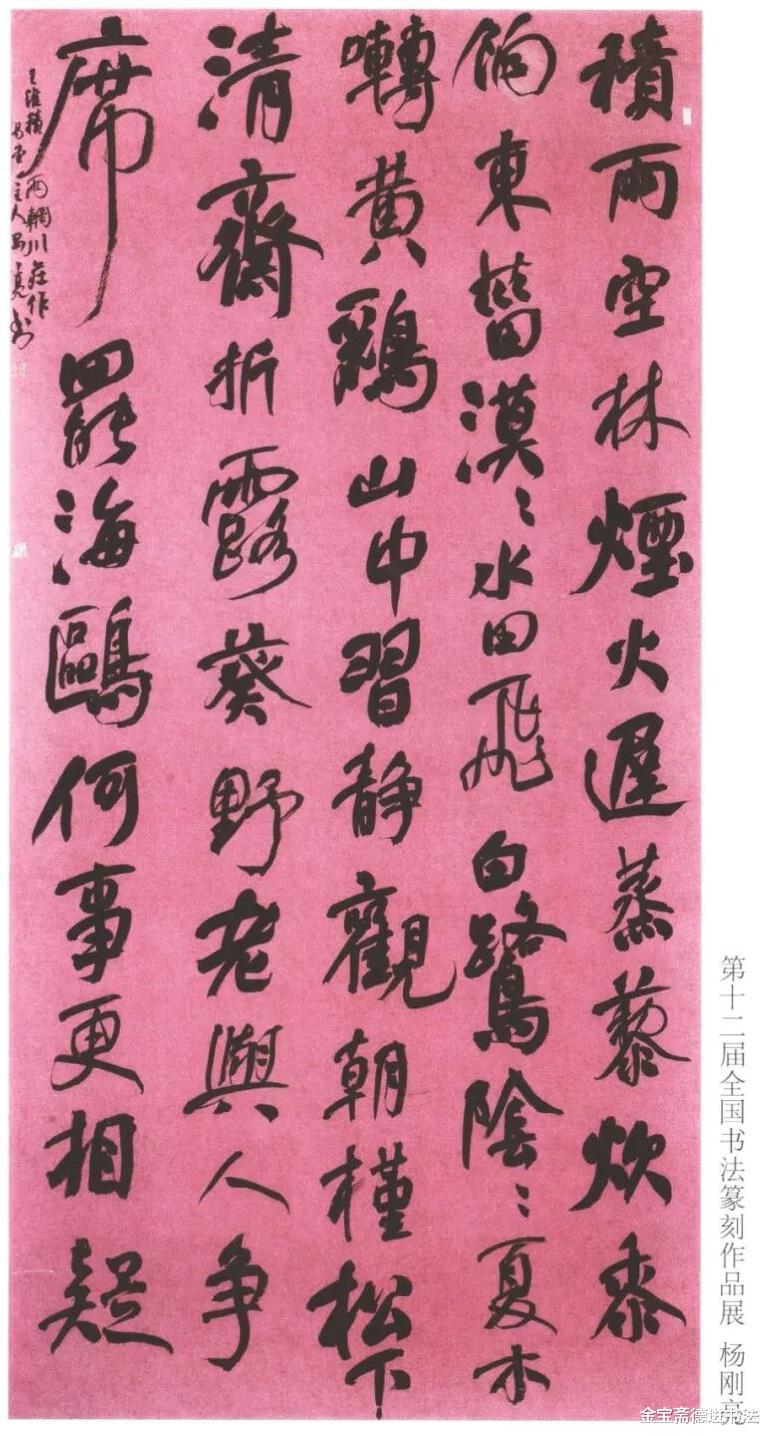 積雨空林煙火遲蒸藜炊黍
餉東菑漠〻水田飛白鷺陰〻夏木
囀黄鸝山中習靜觀朝槿松下
清齋折露葵野老與人争
席罷海鷗何事更相疑
王維積雨輞川莊作
主人剛亮书
第十二届全国书法篆刻作品展 杨刚亮
金宝斋德进书法